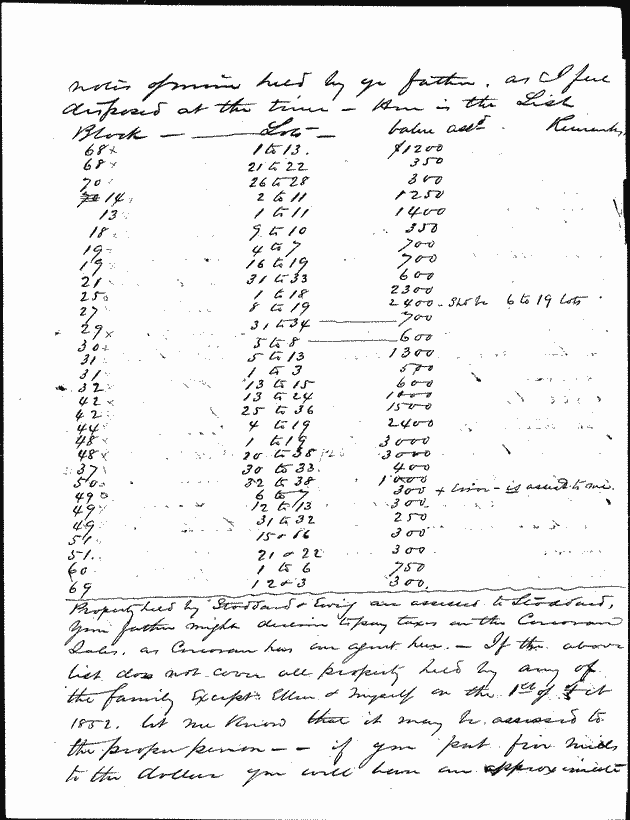 notes of mine held by yr father. as I feel
disposed at the time - Here is the List
Block - Lots - value asst. Remarks
68 x 1 to 13. $1200
68 x 21 to 22 350
70 26 to 28 300
14 2 to 11 1250
13 1 to 11 1400
18 9 to 10 350
19 4 to 7 700
19 16 to 19 700
21 31 to 33 600
25 1 to 18 2300
27 8 to 19 2400 - Shd be 6 to 19 Lots
29 x 31 to 34 700
30 5 to 8 600
31 5 to 13 1300
31 1 to 3 500
32 13 to 15 600
42 13 to 24 1000
42 25 to 36 1500
44 4 to 19 2400
48 1 to 19 3000
48 x 20 to 38 3000
37 30 to 33 400
50 32 to 38 1000
49 6 to 7 300 + Error - is assd to me.
49 12 to 13 300
49 31 to 32 250
51 15 & 16 300
51. 21 & 22 300
60 1 to 6 750
69 1 2 & 3 300.
Property held by Stoddard & Ewing are assessed to Stoddard,
Your father might decline to pay taxes on the Corcoran
Sales. as Corcoran has an agent here. - If the above
list does not cover all property held by any of
the family Except Ellen & myself on the 1st of Feb
1852. let me know that it may be assessed to
the proper person - - if you put five mills
to the dollar you will have an approximate